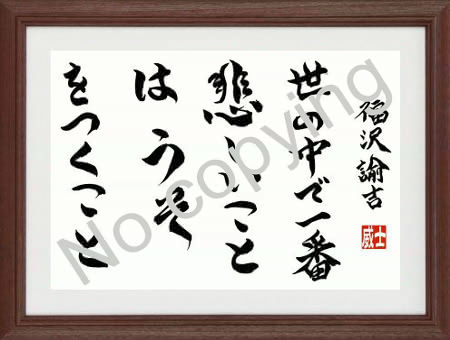 福沢諭吉
世の中で一番
悲しいこと
はうそ
をつくこと
威士
No copying